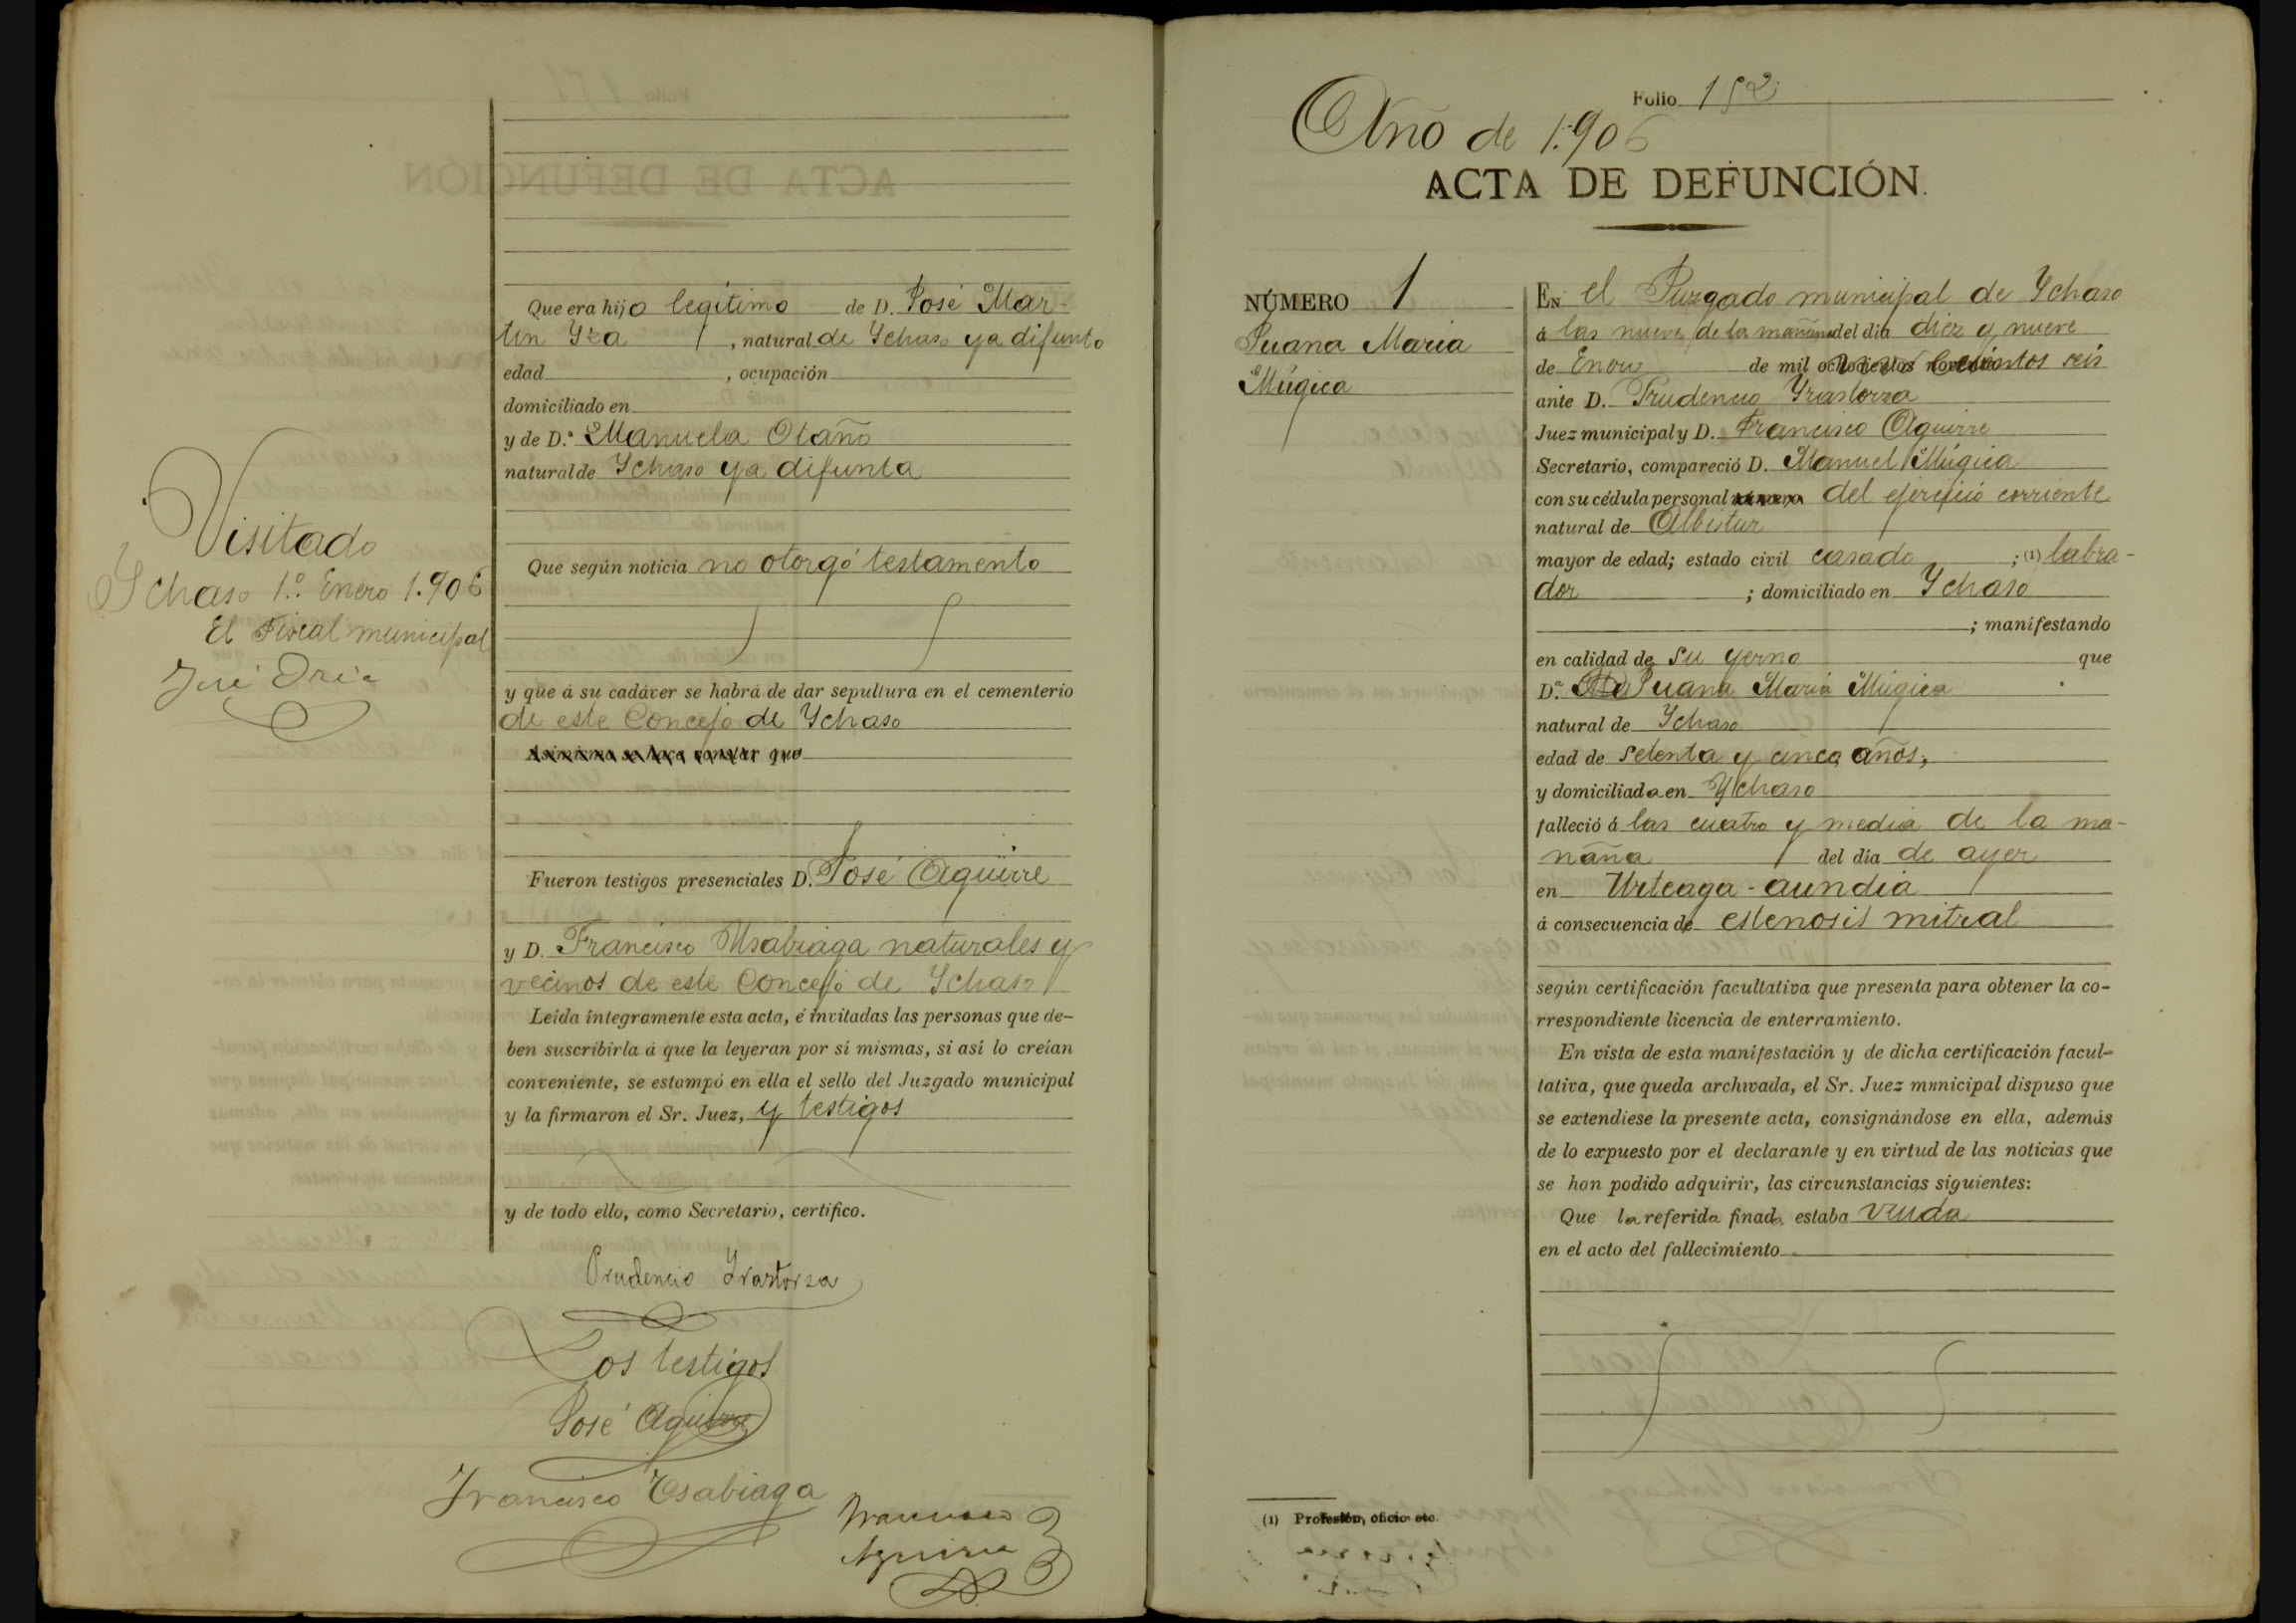 Que era hijo legítimo de D. José Mar-
tín Yza, natural de Ychaso ya difunto
edad , ocupación
domiciliado en
y de D.ª Manuela Otaño
natural de Ychaso ya difunta
Que según noticia no otorgó testamento
y que á su cadáver se habrá de dar sepultura en el cementerio
de este Concejo de Ychaso
Asimismo se hace constar que
Fueron testigos presenciales D. José Aguirre
y D. Francisco Usabiaga naturales y
vecinos de este Concejo de Ychaso
Leída íntegramente esta acta, é invitadas las personas que de-
ben suscribirla á que la leyeran por sí mismas, si así lo creían
conveniente, se estampó en ella el sello del Juzgado municipal
y la firmaron el Sr. Juez, y testigos
y de todo ello, como Secretario, certifico.
Prudencio Yrastorza
Los testigos
José Aguirre
Francisco Usabiaga
Francisco
Aguirre
Visitado
Ychaso 1.º Enero 1.906
El Fiscal municipal
José Oria
Folio 152
Año de 1.906
ACTA DE DEFUNCIÓN.
NÚMERO 1
Juana Maria
Múgica
EN el Juzgado municipal de Ychaso
á las nueve de la mañana del día diez y nueve
de Enero de mil novecientos seis
ante D. Prudencio Yrastorza
Juez municipal y D. Francisco Aguirre
Secretario, compareció D. Manuel Múgica
con su cédula personal número del ejercicio corriente
natural de Albistur
mayor de edad; estado civil casado ; (1) labra-
dor ; domiciliado en Ychaso
; manifestando
en calidad de su yerno que
D.ª Juana Maria Múgica
natural de Ychaso
edad de setenta y cinco años,
y domiciliada en Ychaso
falleció á las cuatro y media de la ma-
ñana del día de ayer
en Urteaga-aundia
á consecuencia de estenosis mitral
según certificación facultativa que presenta para obtener la co-
rrespondiente licencia de enterramiento.
En vista de esta manifestación y de dicha certificación facul-
tativa, que queda archivada, el Sr. Juez municipal dispuso que
se extendiese la presente acta, consignándose en ella, además
de lo expuesto por el declarante y en virtud de las noticias que
se han podido adquirir, las circunstancias siguientes:
Que la referida finada estaba viuda
en el acto del fallecimiento
(1) Profesión, oficio etc.